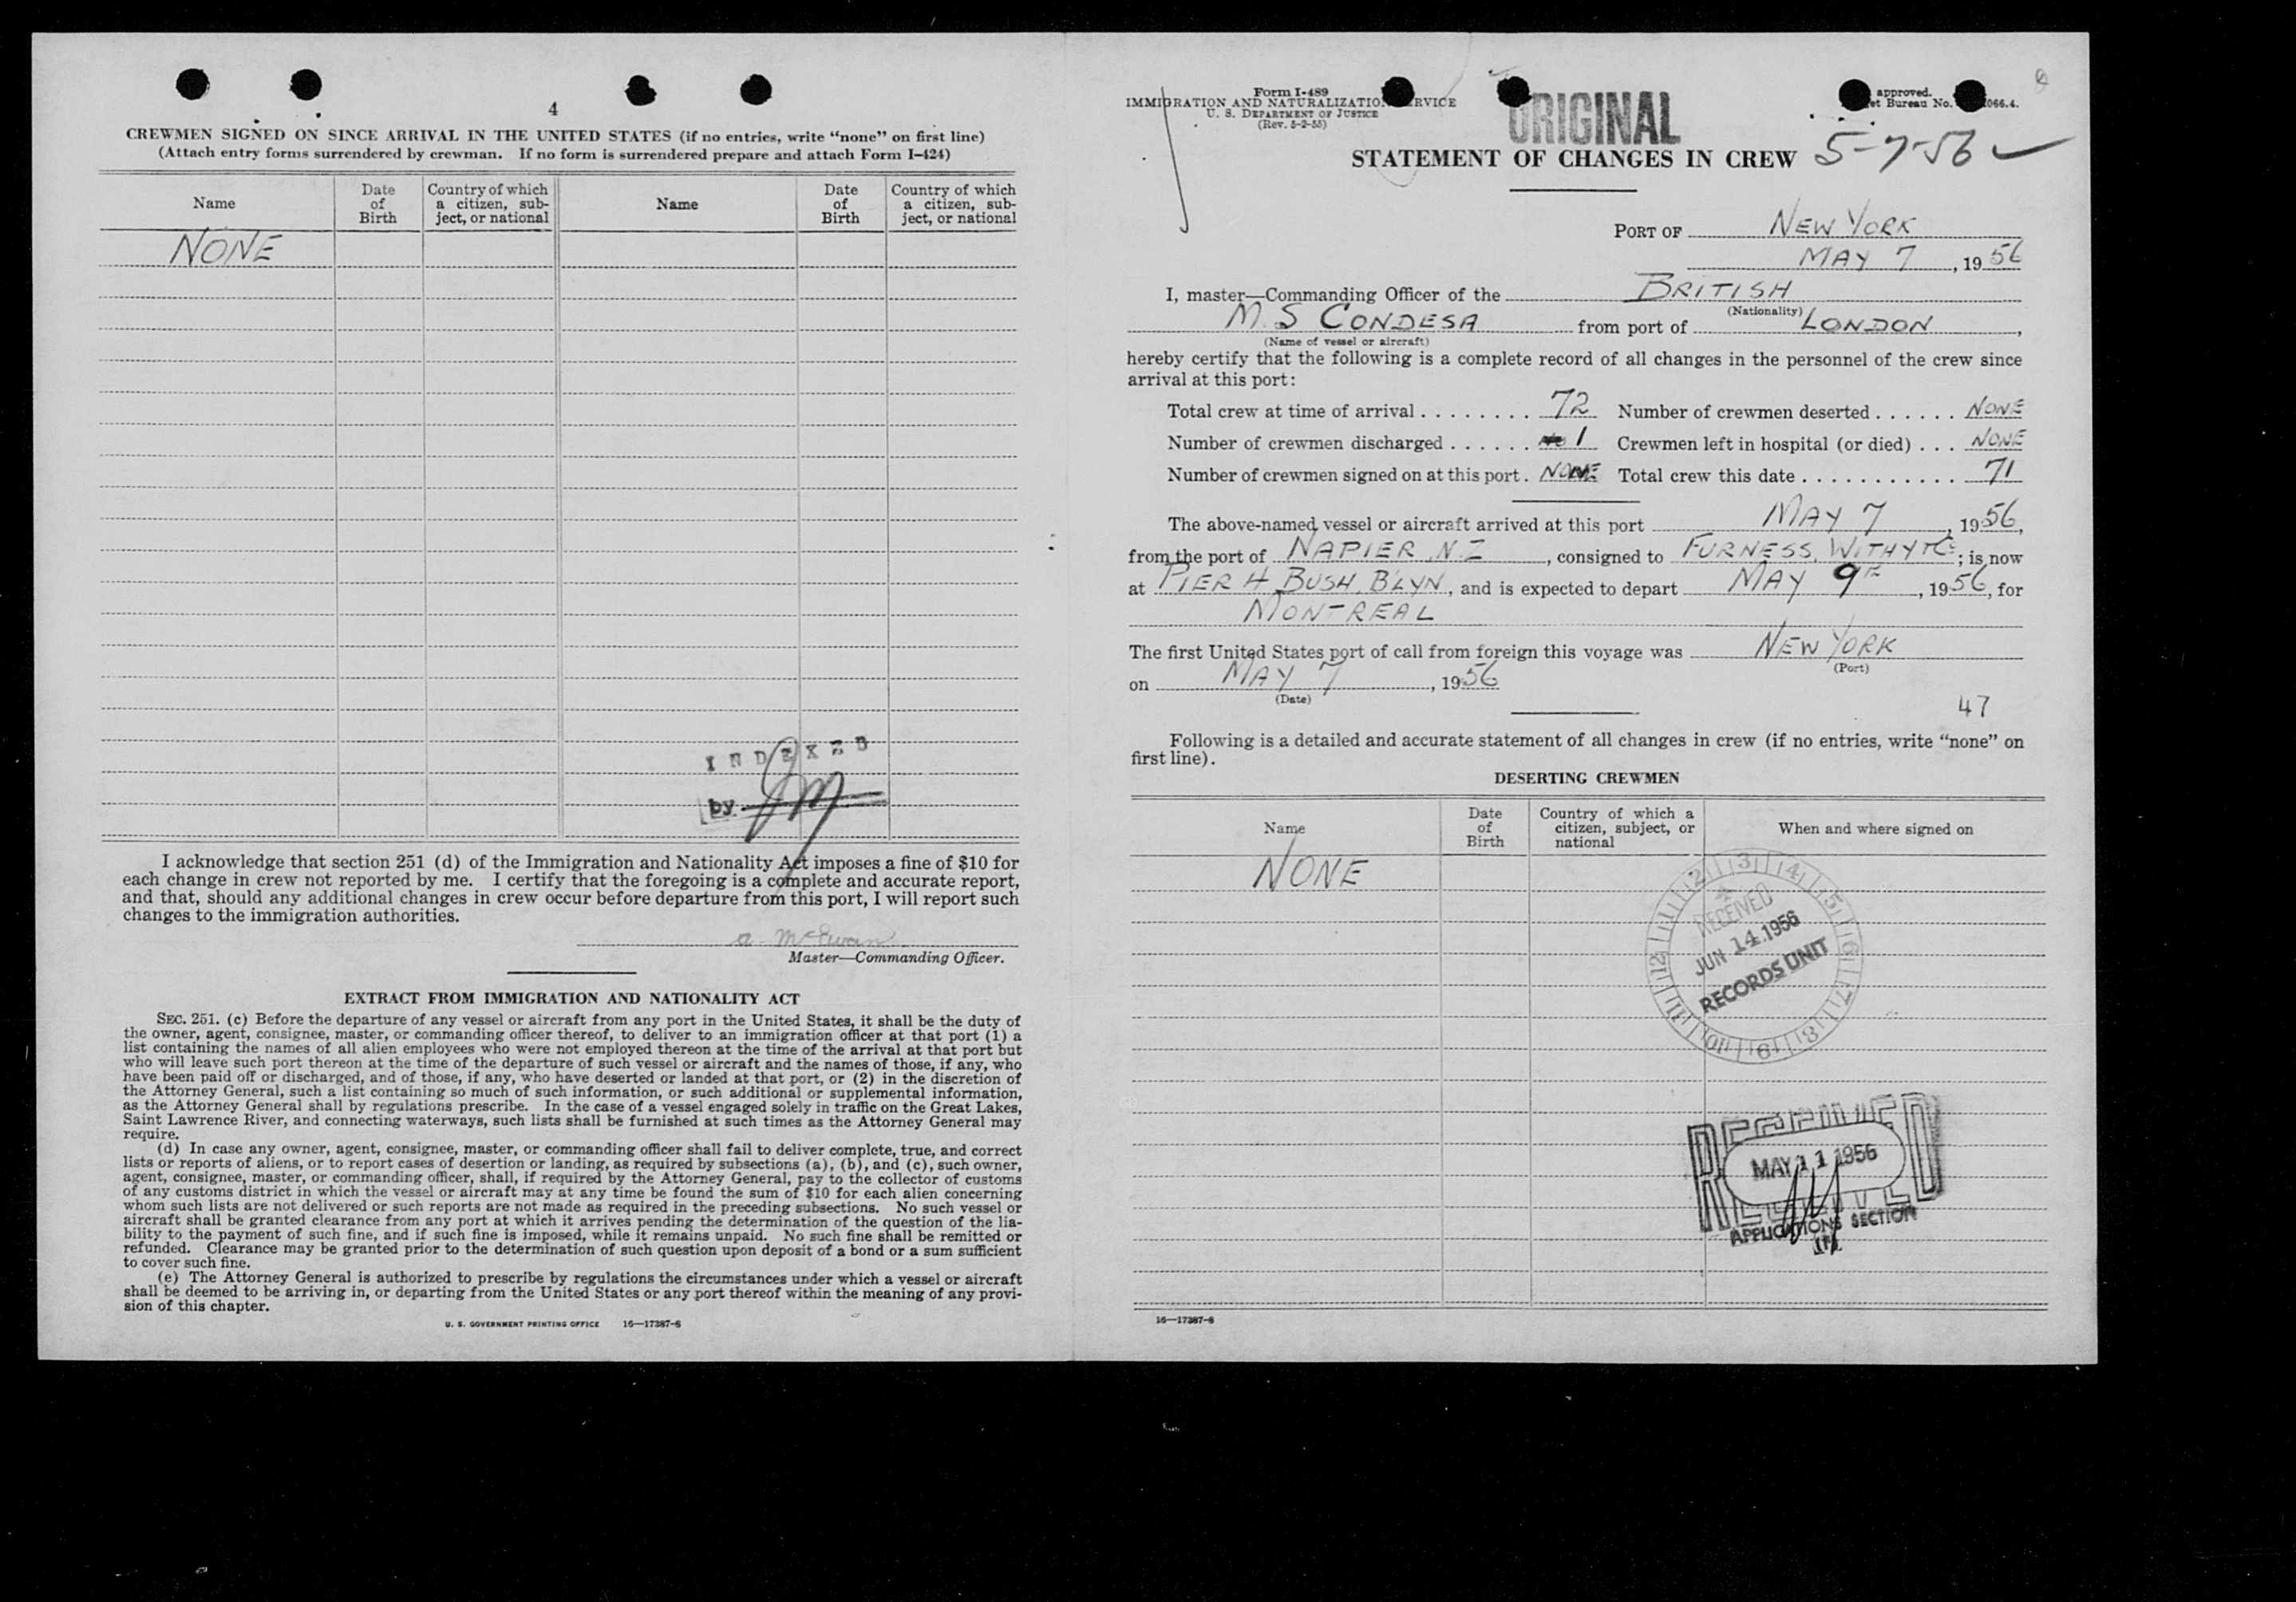 4
CREWMEN SIGNED ON SINCE ARRIVAL IN THE UNITED STATES (if no entries, write “none” on first line)
(Attach entry forms surrendered by crewman. If no form is surrendered prepare and attach Form I–424)
Name Date of Birth Country of which a citizen, sub- ject, or national Name Date of Birth Country of which a citizen, sub- ject, or national
NONE
INDEXED
by
I acknowledge that section 251 (d) of the Immigration and Nationality Act imposes a fine of $10 for
each change in crew not reported by me. I certify that the foregoing is a complete and accurate report,
and that, should any additional changes in crew occur before departure from this port, I will report such
changes to the immigration authorities.
a. McEwan
Master—Commanding Officer.
EXTRACT FROM IMMIGRATION AND NATIONALITY ACT
SEC. 251. (c) Before the departure of any vessel or aircraft from any port in the United States, it shall be the duty of
the owner, agent, consignee, master, or commanding officer thereof, to deliver to an immigration officer at that port (1) a
list containing the names of all alien employees who were not employed thereon at the time of the arrival at that port but
who will leave such port thereon at the time of the departure of such vessel or aircraft and the names of those, if any, who
have been paid off or discharged, and of those, if any, who have deserted or landed at that port, or (2) in the discretion of
the Attorney General, such a list containing so much of such information, or such additional or supplemental information,
as the Attorney General shall by regulations prescribe. In the case of a vessel engaged solely in traffic on the Great Lakes,
Saint Lawrence River, and connecting waterways, such lists shall be furnished at such times as the Attorney General may
require.
(d) In case any owner, agent, consignee, master, or commanding officer shall fail to deliver complete, true, and correct
lists or reports of aliens, or to report cases of desertion or landing, as required by subsections (a), (b), and (c), such owner,
agent, consignee, master, or commanding officer, shall, if required by the Attorney General, pay to the collector of customs
of any customs district in which the vessel or aircraft may at any time be found the sum of $10 for each alien concerning
whom such lists are not delivered or such reports are not made as required in the preceding subsections. No such vessel or
aircraft shall be granted clearance from any port at which it arrives pending the determination of the question of the lia-
bility to the payment of such fine, and if such fine is imposed, while it remains unpaid. No such fine shall be remitted or
refunded. Clearance may be granted prior to the determination of such question upon deposit of a bond or a sum sufficient
to cover such fine.
(e) The Attorney General is authorized to prescribe by regulations the circumstances under which a vessel or aircraft
shall be deemed to be arriving in, or departing from the United States or any port thereof within the meaning of any provi-
sion of this chapter.
U. S. GOVERNMENT PRINTING OFFICE 16—17387-8
Form I-489
IMMIGRATION AND NATURALIZATION SERVICE
U. S. DEPARTMENT OF JUSTICE
(Rev. 5-2-55)
ORIGINAL
approved.
Bureau No. 066.4.
STATEMENT OF CHANGES IN CREW 5-7-56
PORT OF NEW YORK
MAY 7, 1956
I, master—Commanding Officer of the BRITISH
(Nationality)
M.S CONDESA from port of LONDON,
(Name of vessel or aircraft)
hereby certify that the following is a complete record of all changes in the personnel of the crew since
arrival at this port:
Total crew at time of arrival . . . . . . . . 72 Number of crewmen deserted . . . . . . NONE
Number of crewmen discharged . . . . . . 1 Crewmen left in hospital (or died) . . . NONE
Number of crewmen signed on at this port . NONE Total crew this date . . . . . . . . . . . 71
The above-named vessel or aircraft arrived at this port MAY 7, 1956,
from the port of NAPIER N.Z, consigned to FURNESS, WITHY & Co; is now
at PIER 4 BUSH, B'LYN, and is expected to depart MAY 9th, 1956, for
MONTREAL
The first United States port of call from foreign this voyage was NEW YORK
(Port)
on MAY 7, 1956
(Date)
47
Following is a detailed and accurate statement of all changes in crew (if no entries, write “none” on
first line).
DESERTING CREWMEN
Name Date of Birth Country of which a citizen, subject, or national When and where signed on
NONE
RECEIVED
JUN 14 1956
RECORDS UNIT
1 2 3 4 5 6 7 8 9 10 11 12
RECEIVED
MAY 11 1956
RECEIVED
APPLICATIONS SECTION
16—17387-8